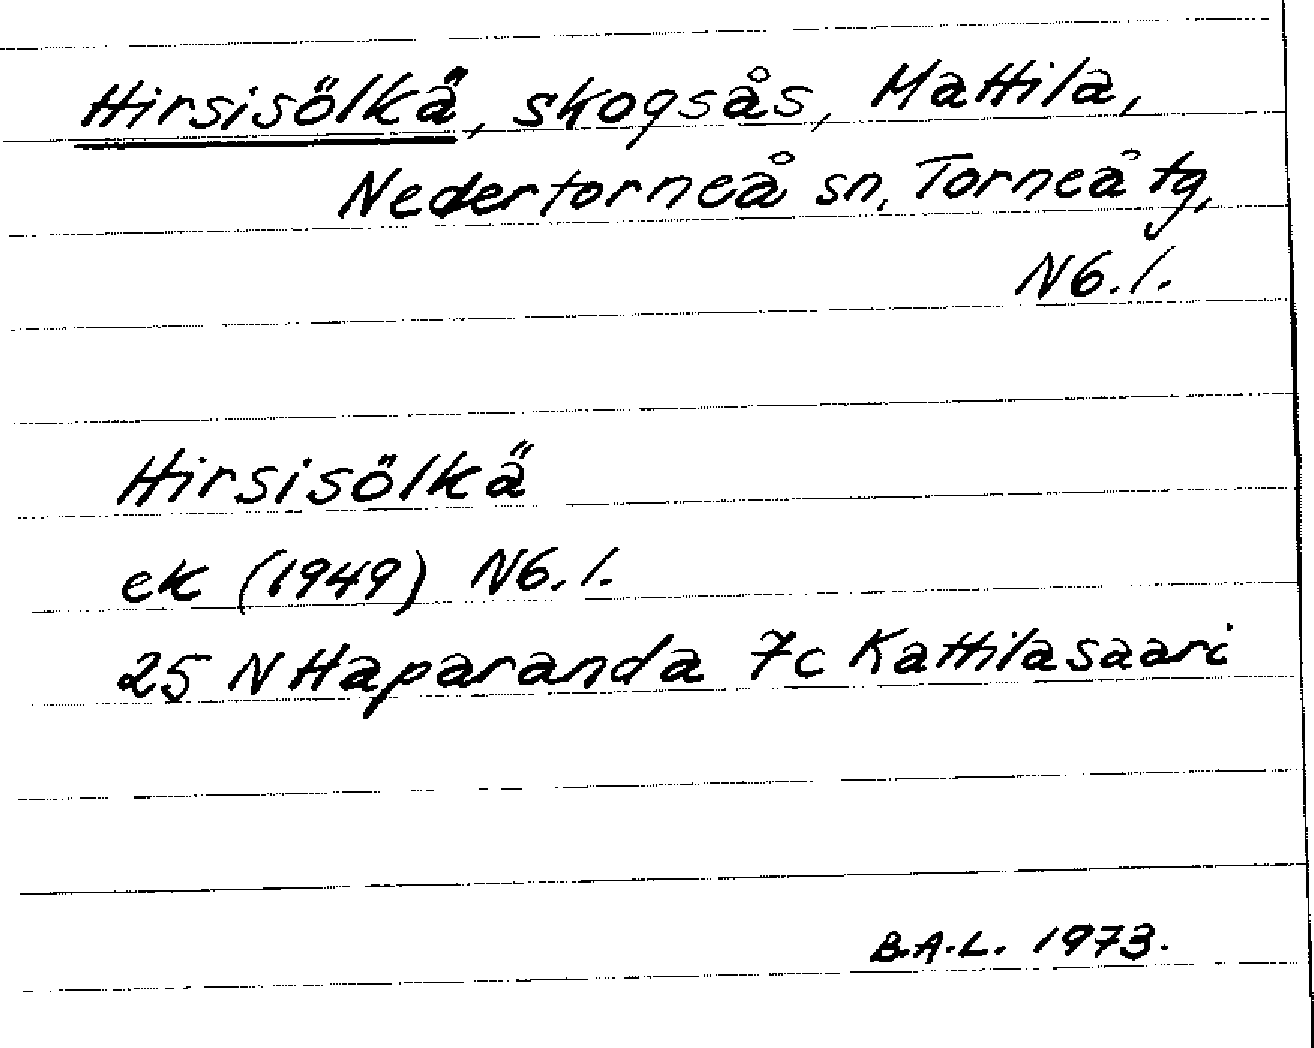 Hirsisölkä, skogsås, Mattila,
Nedertorneå sn, Torneå tg,
N6.1.
Hirsisölkä
ek (1949) N6.1.
25 N Haparanda 7c Kattilasaari
B.A.L. 1973.